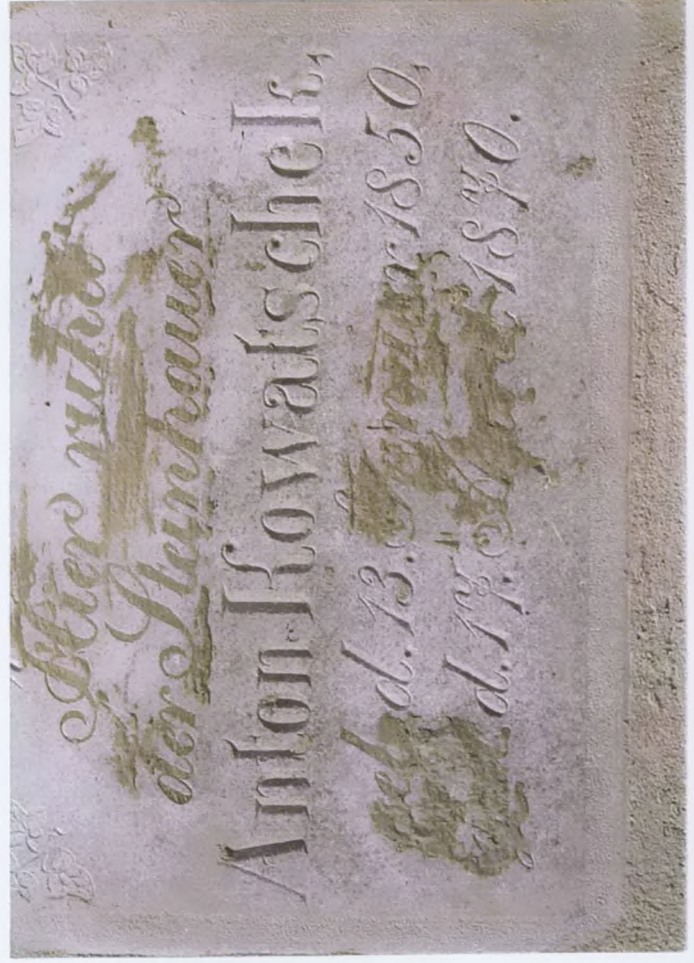 Hier ruht
der Steinhauer
Anton Kowatschek,
geb d. 13. Januar 1850,
d. 17. 1870.